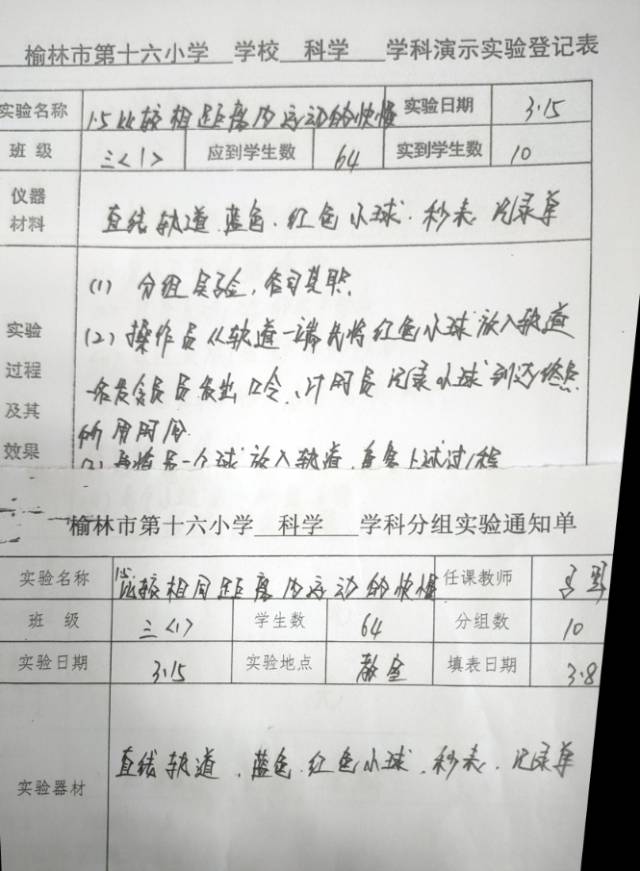 榆林市第十六小学 学校 科学 学科演示实验登记表
实验名称 1.5比较相同距离内运动的快慢 实验日期 3.15
班 级 三<1> 应到学生数 64 实到学生数 10
仪器材料 直线轨道 蓝色.红色小球.秒表.记录单
实验过程及其效果
(1) 分组实验,各司其职.
(2) 操作员从轨道一端先将红色小球放入轨道
一名发令员发出口令、计时员记录小球到达终点
所用时间.
(3) 再将另一个球放入轨道,重复上述过程
榆林市第十六小学 科学 学科分组实验通知单
实验名称 1.5比较相同距离内运动的快慢 任课教师
班 级 三<1> 学生数 64 分组数 10
实验日期 3.15 实验地点 教室 填表日期 3.8
实验器材 直线轨道、蓝色.红色小球.秒表.记录单